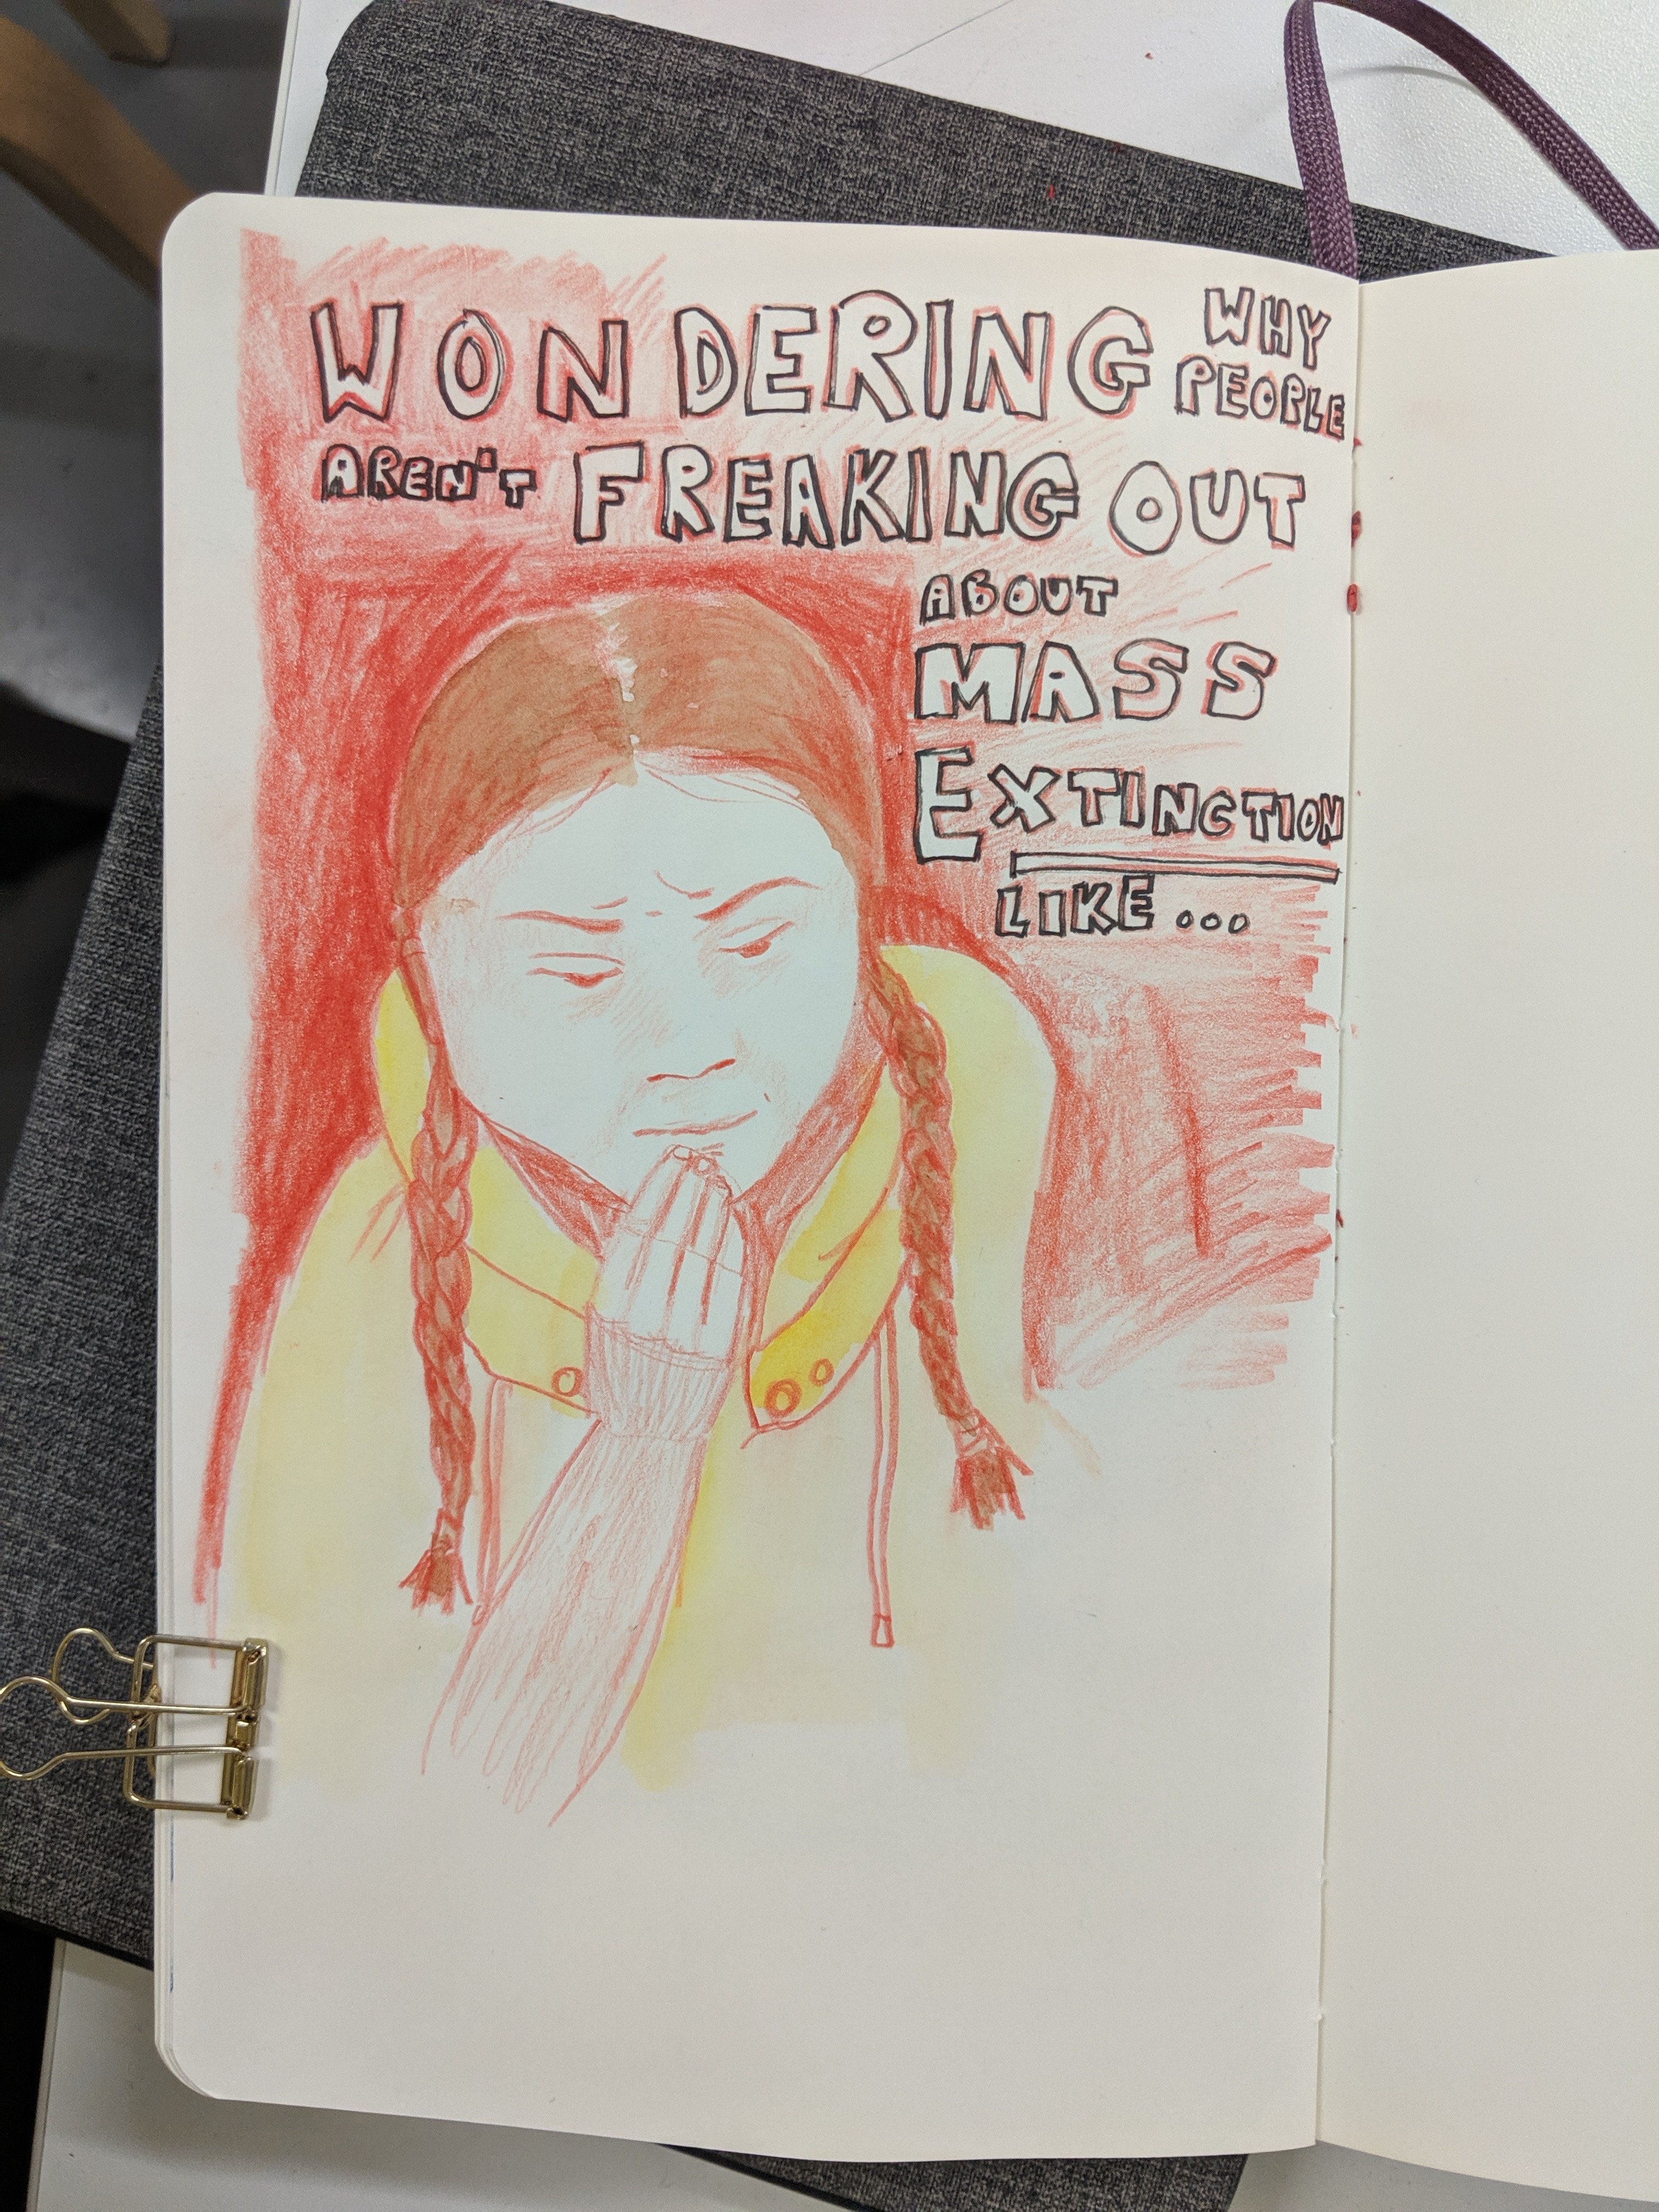 WONDERING WHY
PEOPLE
AREN'T FREAKING OUT
ABOUT
MASS
EXTINCTION
LIKE...